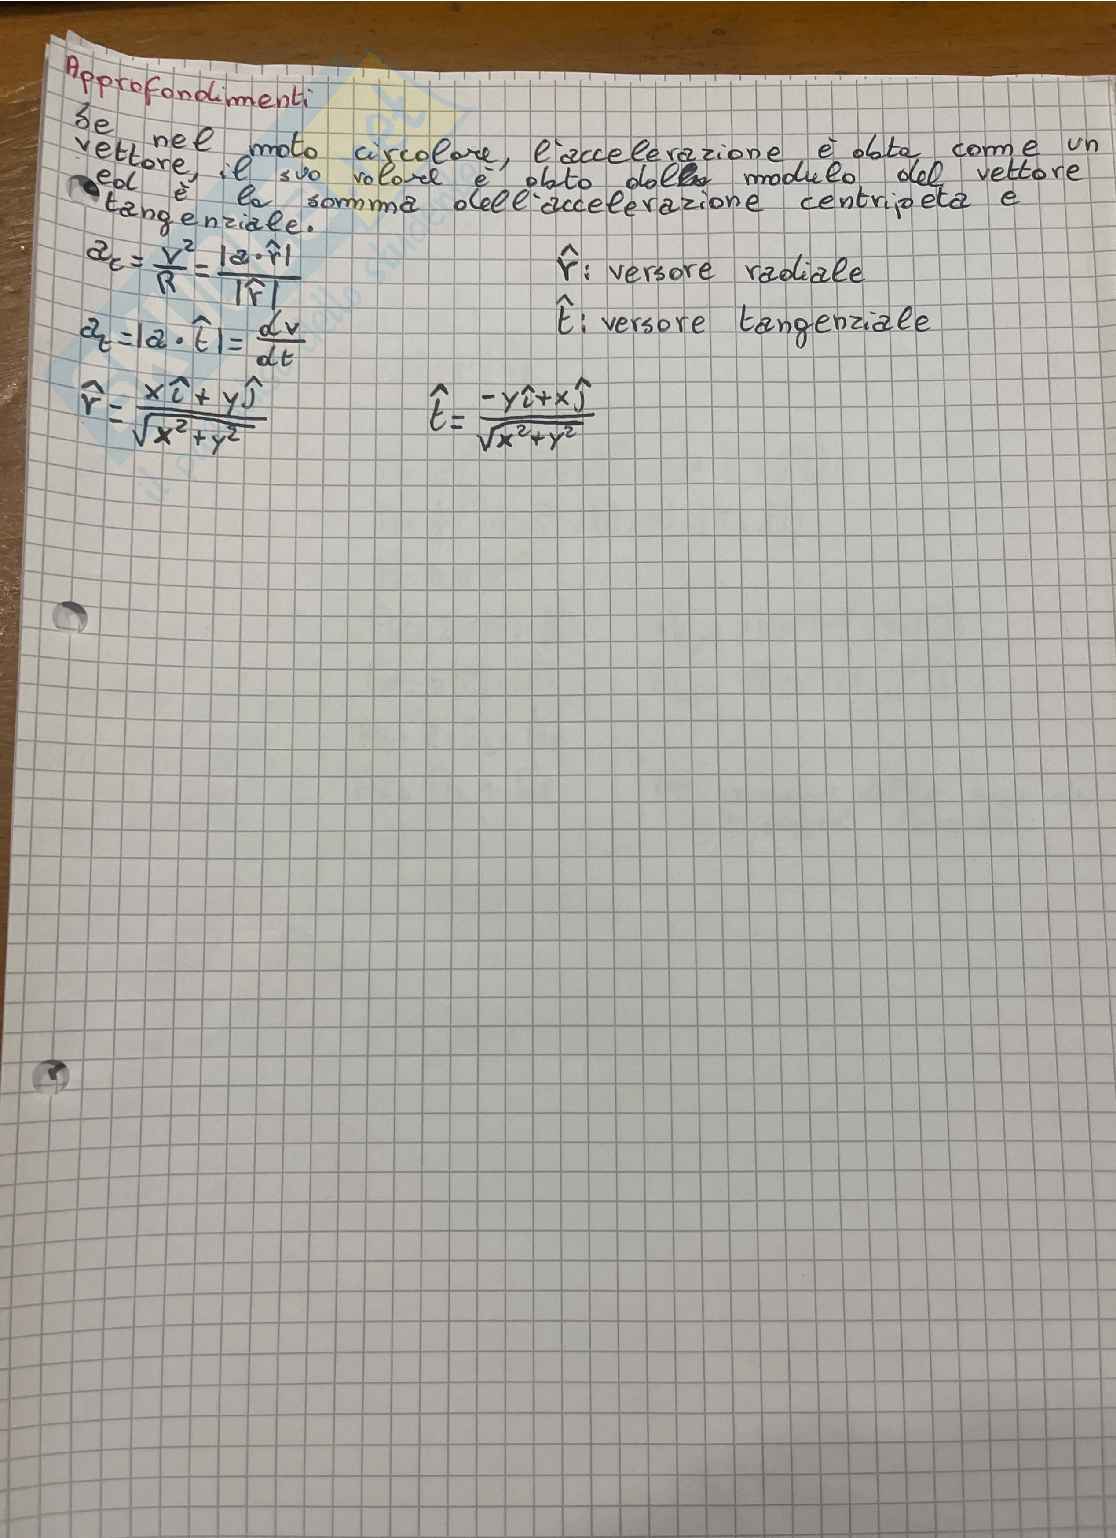 Approfondimenti
Se nel moto circolare, l'accelerazione è data come un
vettore, il suo valore è dato dalla modulo del vettore
ed è la somma dell'accelerazione centripeta e
tangenziale.
a_c = v²/R = |a·r̂|/|r̂|
r̂: versore radiale
a_t = |a·t̂| = dv/dt
t̂: versore tangenziale
r̂ = (xî + yĵ)/√(x²+y²)
t̂ = (-yî+xĵ)/√(x²+y²)